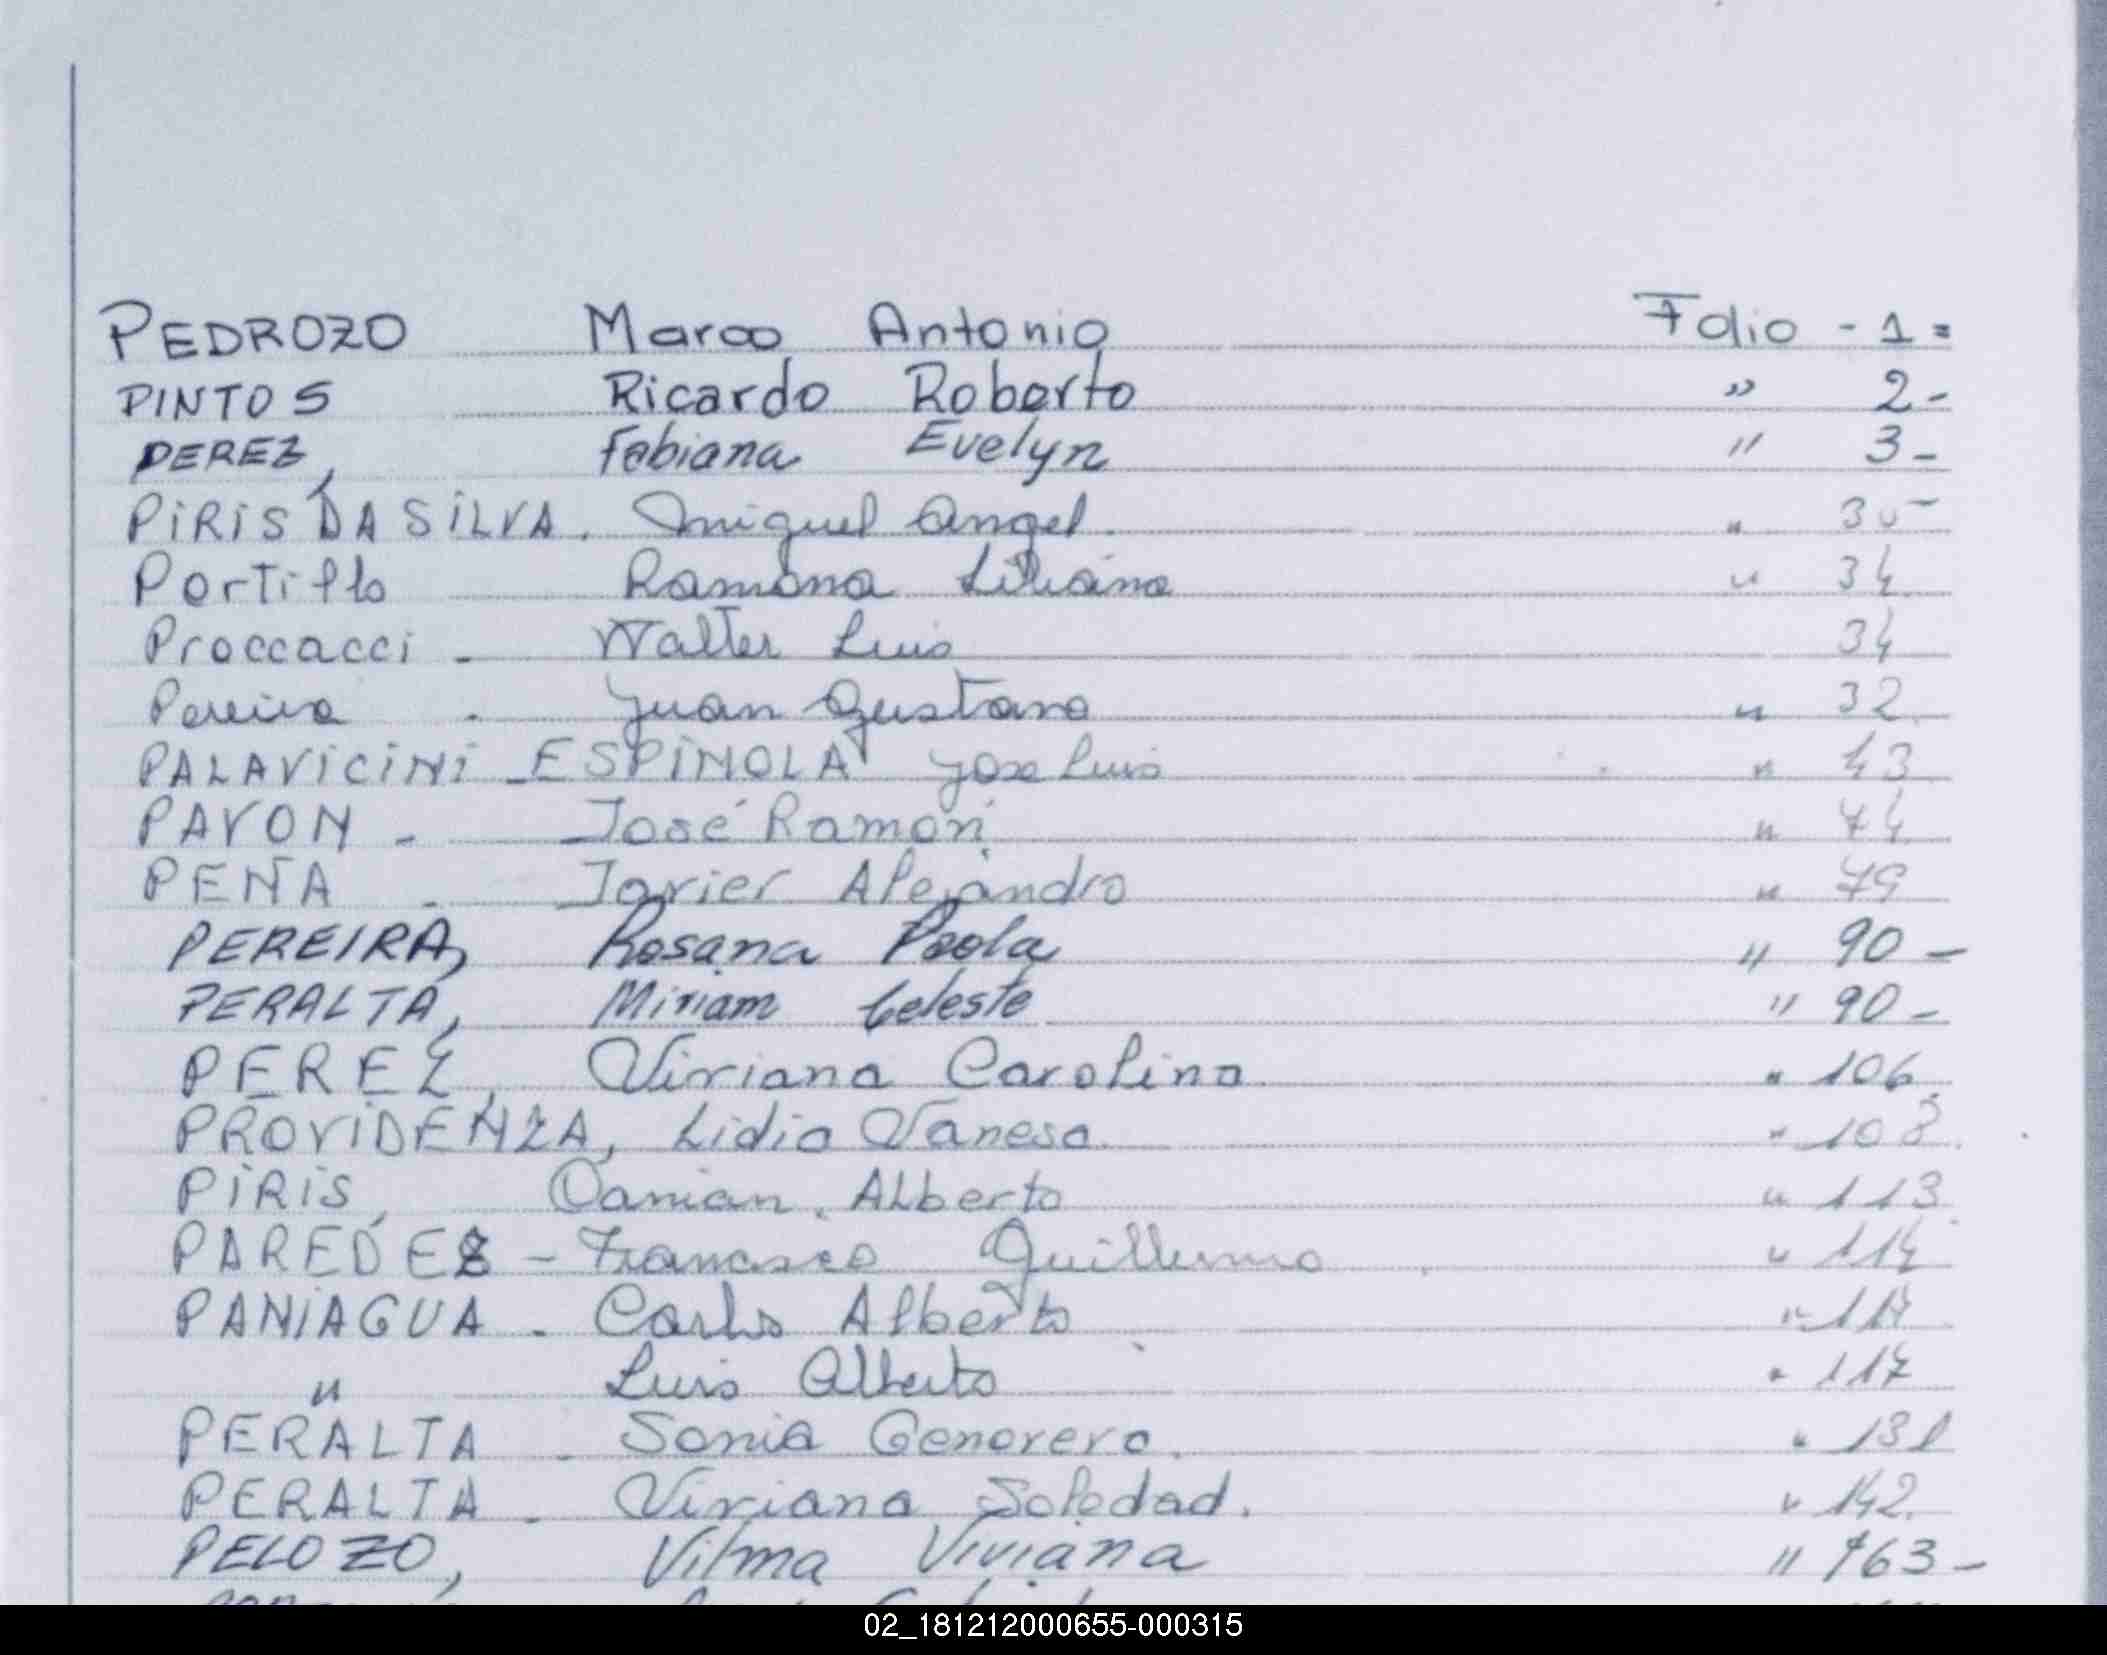 PEDROZO Marco Antonio Folio - 1 =
PINTOS Ricardo Roberto " 2 -
PEREZ, Fabiana Evelyn " 3 -
PiRiS DA SiLVA. Miguel Angel " 30 -
Portillo Ramona Liliana " 34
Proccacci - Walter Luis 34
Pereira - Juan Gustavo " 32
PALAViCiNi - ESPiNOLA Jose Luis " 43
PAVON - José Ramón " 74
PEÑA - Javier Alejandro " 79
PEREIRA, Rosana Paola " 90 -
PERALTA, Miriam Celeste " 90 -
PEREZ, Viviana Carolina " 106
PROViDENZA, Lidia Vanesa " 108
PiRiS, Damian Alberto " 113
PAREDES - Francisco Guillermo " 114
PANiAGUA - Carlos Alberto "
" Luis Alberto " 117
PERALTA - Sonia Genovera " 131
PERALTA - Viviana Soledad. " 142
PELOZO, Vilma Viviana " 163 -
02_181212000655-000315